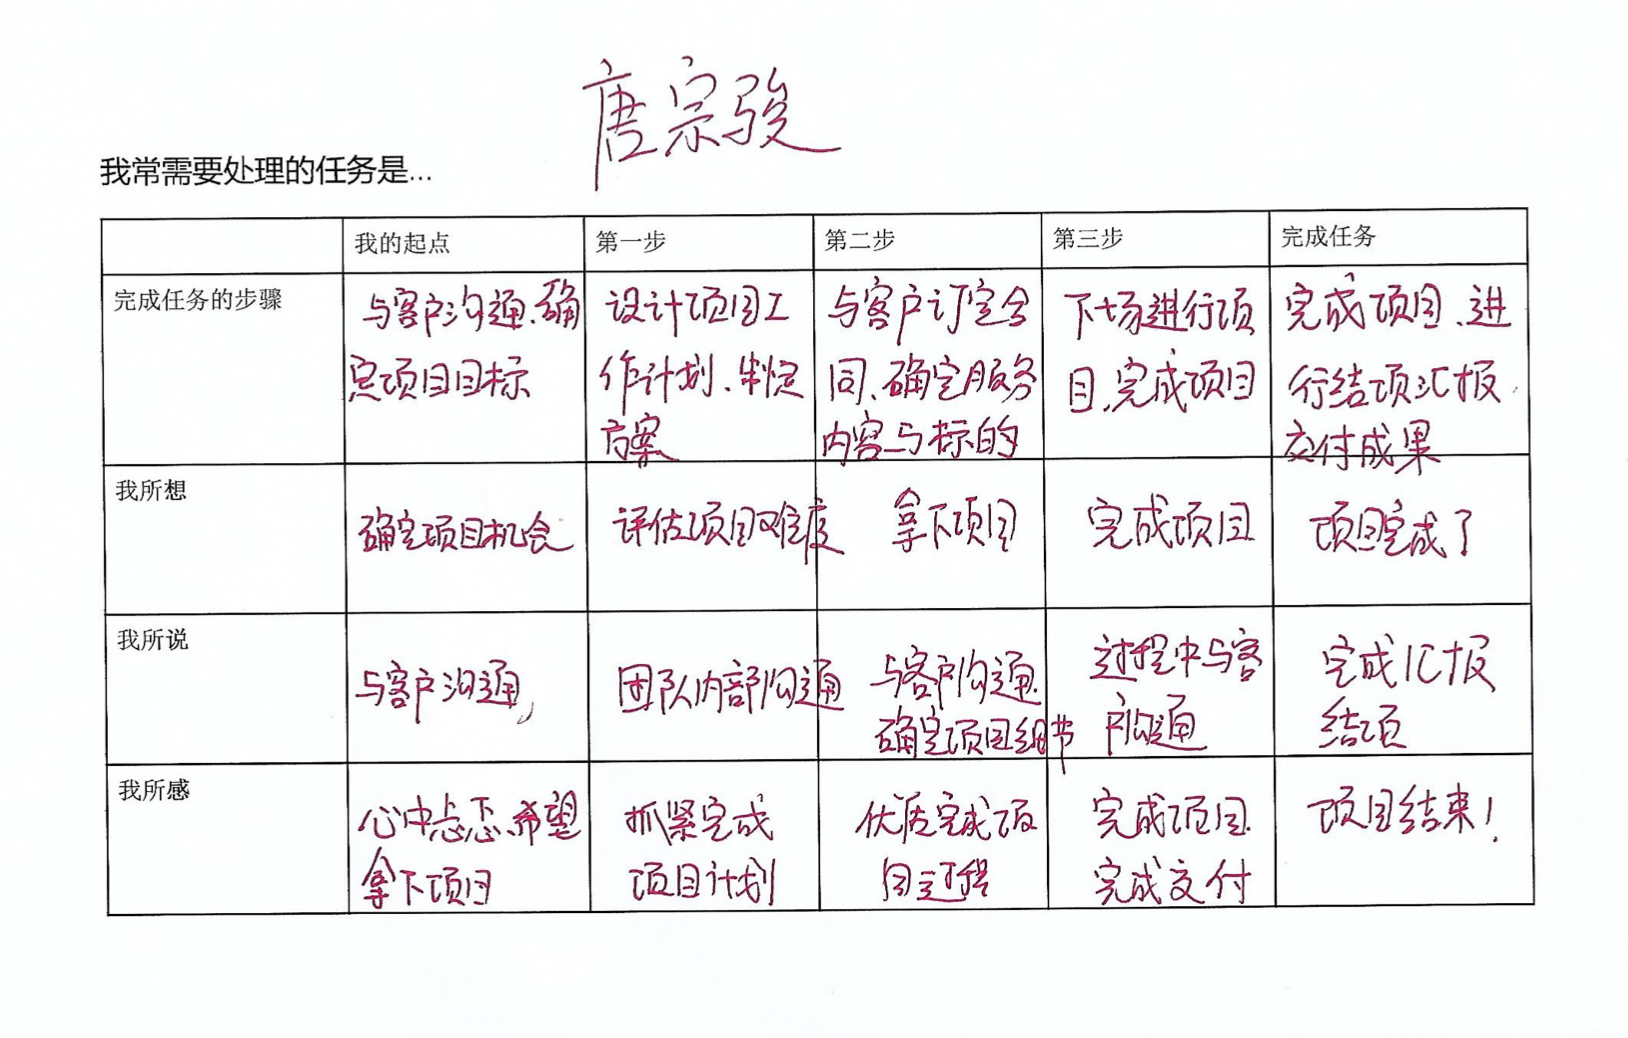 唐宗骏
我常需要处理的任务是...
我的起点 第一步 第二步 第三步 完成任务
完成任务的步骤
与客户沟通、确
定项目目标
设计项目工
作计划、制定
方案
与客户订定合
同、确定服务
内容与标的
下场进行项
目、完成项目
完成项目、进
行结项汇报、
交付成果
我所想
确定项目机会
评估项目难度
拿下项目
完成项目
项目完成了
我所说
与客户沟通,
团队内部沟通
与客户沟通、
确定项目细节
过程中与客
户沟通
完成汇报
结项
我所感
心中忐忑、希望
拿下项目
抓紧完成
项目计划
优质完成项
目过程
完成项目、
完成交付
项目结束!